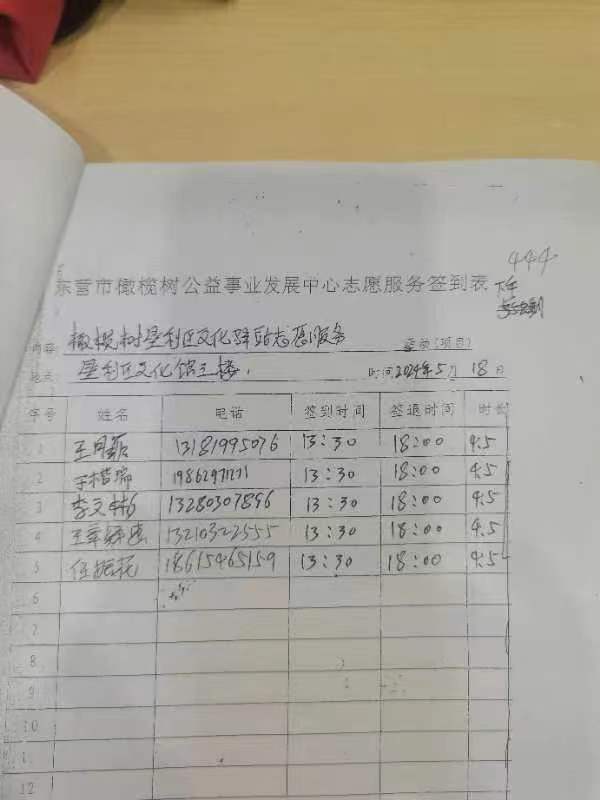 444
东营市橄榄树公益事业发展中心志愿服务签到表 下午
内容: 橄榄树垦利区文化驿站志愿服务 活动(项目)
地点: 垦利区文化馆三楼. 时间2024年5月18日
序号 姓名 电话 签到时间 签退时间 时长
1 王月 13181995076 13:30 18:00 4.5
2 于楷瑞 19862971271 13:30 18:00 4.5
3 李文 13280307896 13:30 18:00 4.5
4 王 13210322555 13:30 18:00 4.5
5 任振花 18615465159 13:30 18:00 4.5
6
7
8
9
10
11
12